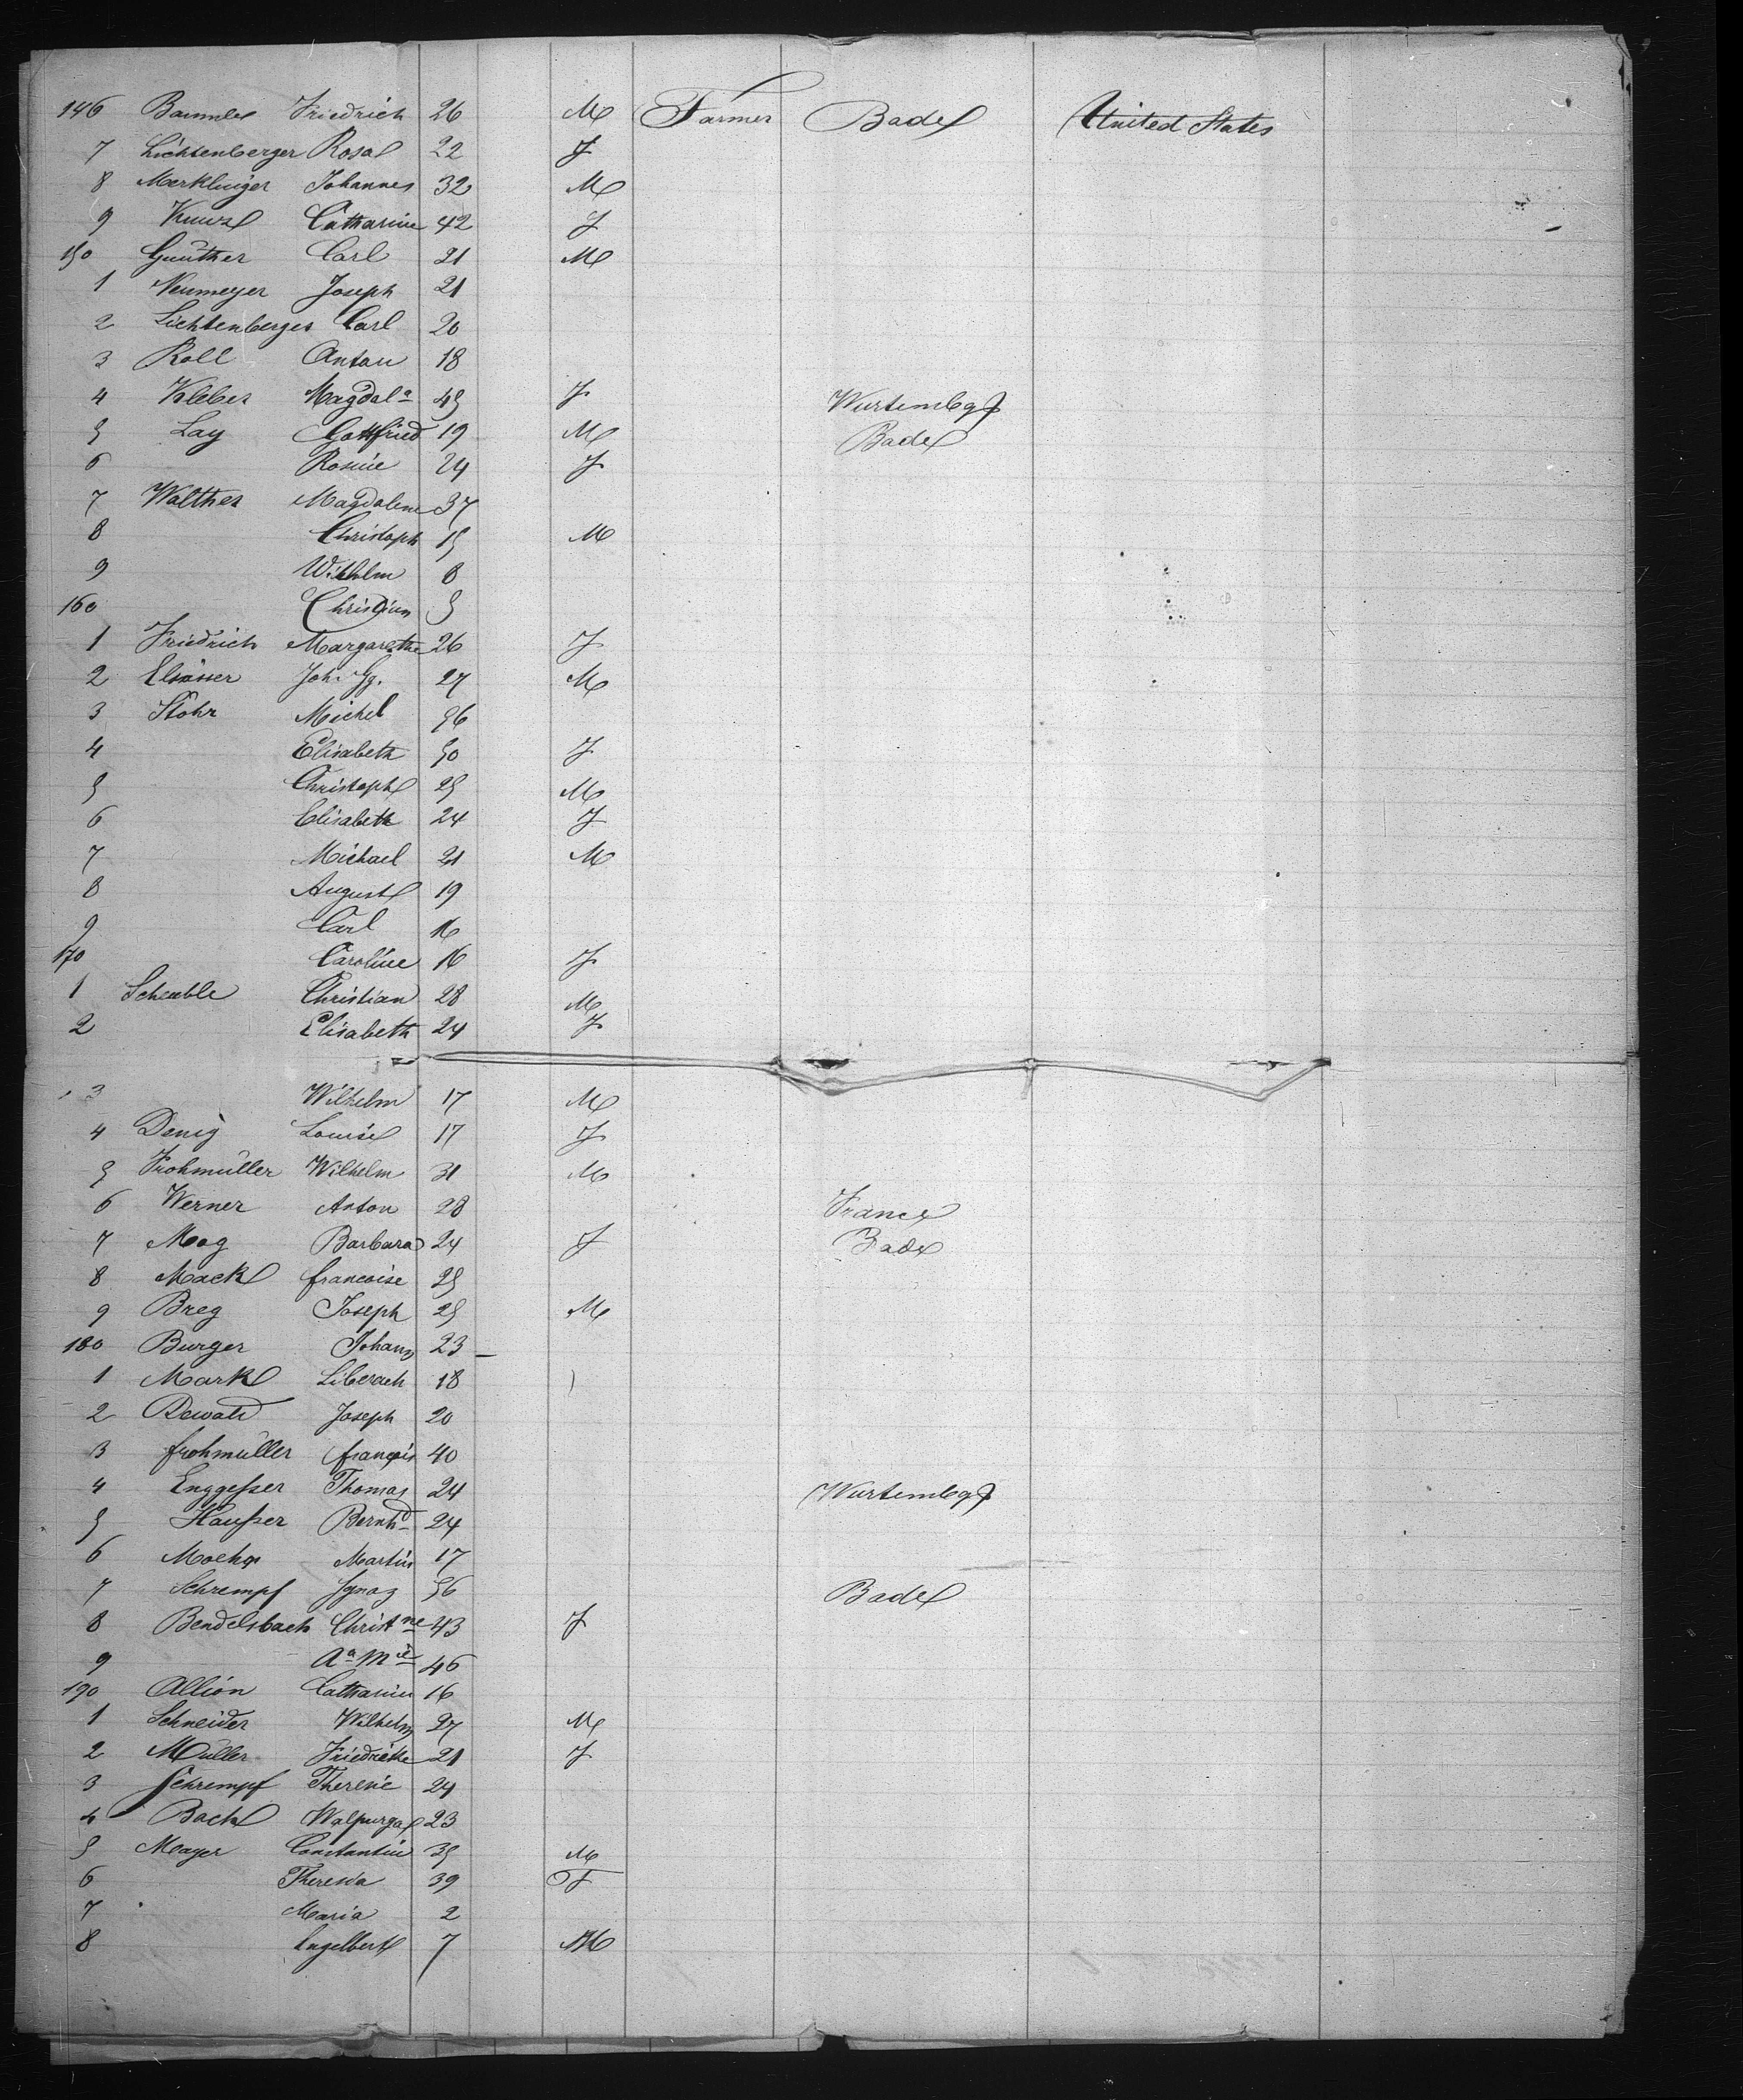 146 Baumler Friedrich 26 M Farmer Bade United States
7 Lichtenberger Rosa 22 F
8 Merklinger Johannes 32 M
9 Kunz Catharine 42 F
150 Günther Carl 21 M
1 Neumeyer Joseph 21
2 Lichtenberger Carl 20
3 Roll Anton 18
4 Kleber Magdal^a 45 F Wurtembg
5 Lay Gottfried 19 M Bade
6 Rosine 24 F
7 Walther Magdalene 37
8 Christoph 15 M
9 Wilhelm 8
160 Christian 5
1 Friedrich Margarethe 26 F
2 Elsässer Joh. Gg. 27 M
3 Stohr Michel 56
4 Elisabeth 50 F
5 Christoph 25 M
6 Elisabeth 24 F
7 Michael 21 M
8 August 19
9 Carl 16
170 Caroline 16 F
1 Scheuble Christian 28 M
2 Elisabeth 24 F
3 Wilhelm 17 M
4 Denig Louise 17 F
5 Frohmüller Wilhelm 31 M
6 Werner Anton 28 France
7 Mog Barbara 24 F Bade
8 Mack francoise 25
9 Breg Joseph 25 M
180 Burger Johann 23
1 Mark 18
2 Dewald Joseph 20
3 frohmüller françois 40
4 Enggesser Thomas 24 Wurtembg
5 Hausser Bernh^d 24
6 Martin 17
7 Schrempf Ignaz 56 Bade
8 Bendelsbach Christ^ne 43 F
9 A^a M^ie 46
190 Allion Catharine 16
1 Schneider Wilhelm 27 M
2 Müller Friedricke 21 F
3 Schrempf Therese 24
4 Bach Walpurga 23
5 Mayer Constantin 35 M
6 Theresia 39 F
7 Maria 2
8 Engelbert 7 M